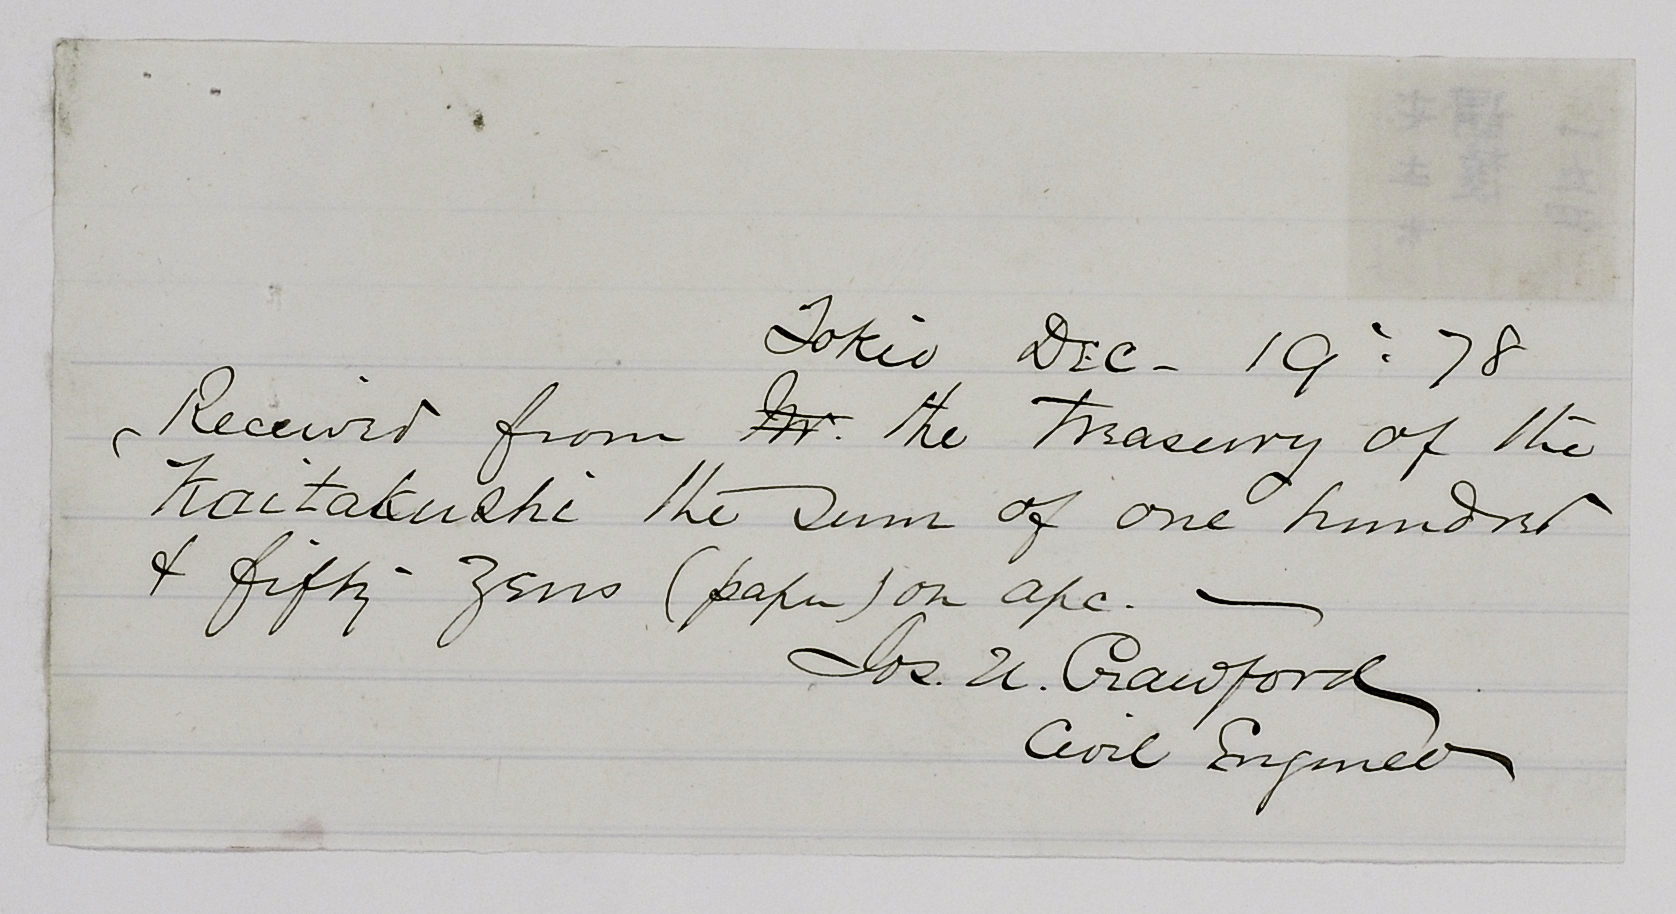 Tokio Dec - 19": 78
Received from Mr. the Treasury of the
Kaitakushi the sum of one hundred
& fifty yens (paper) on a/c. —
Jos. U. Crawford
Civil Engineer